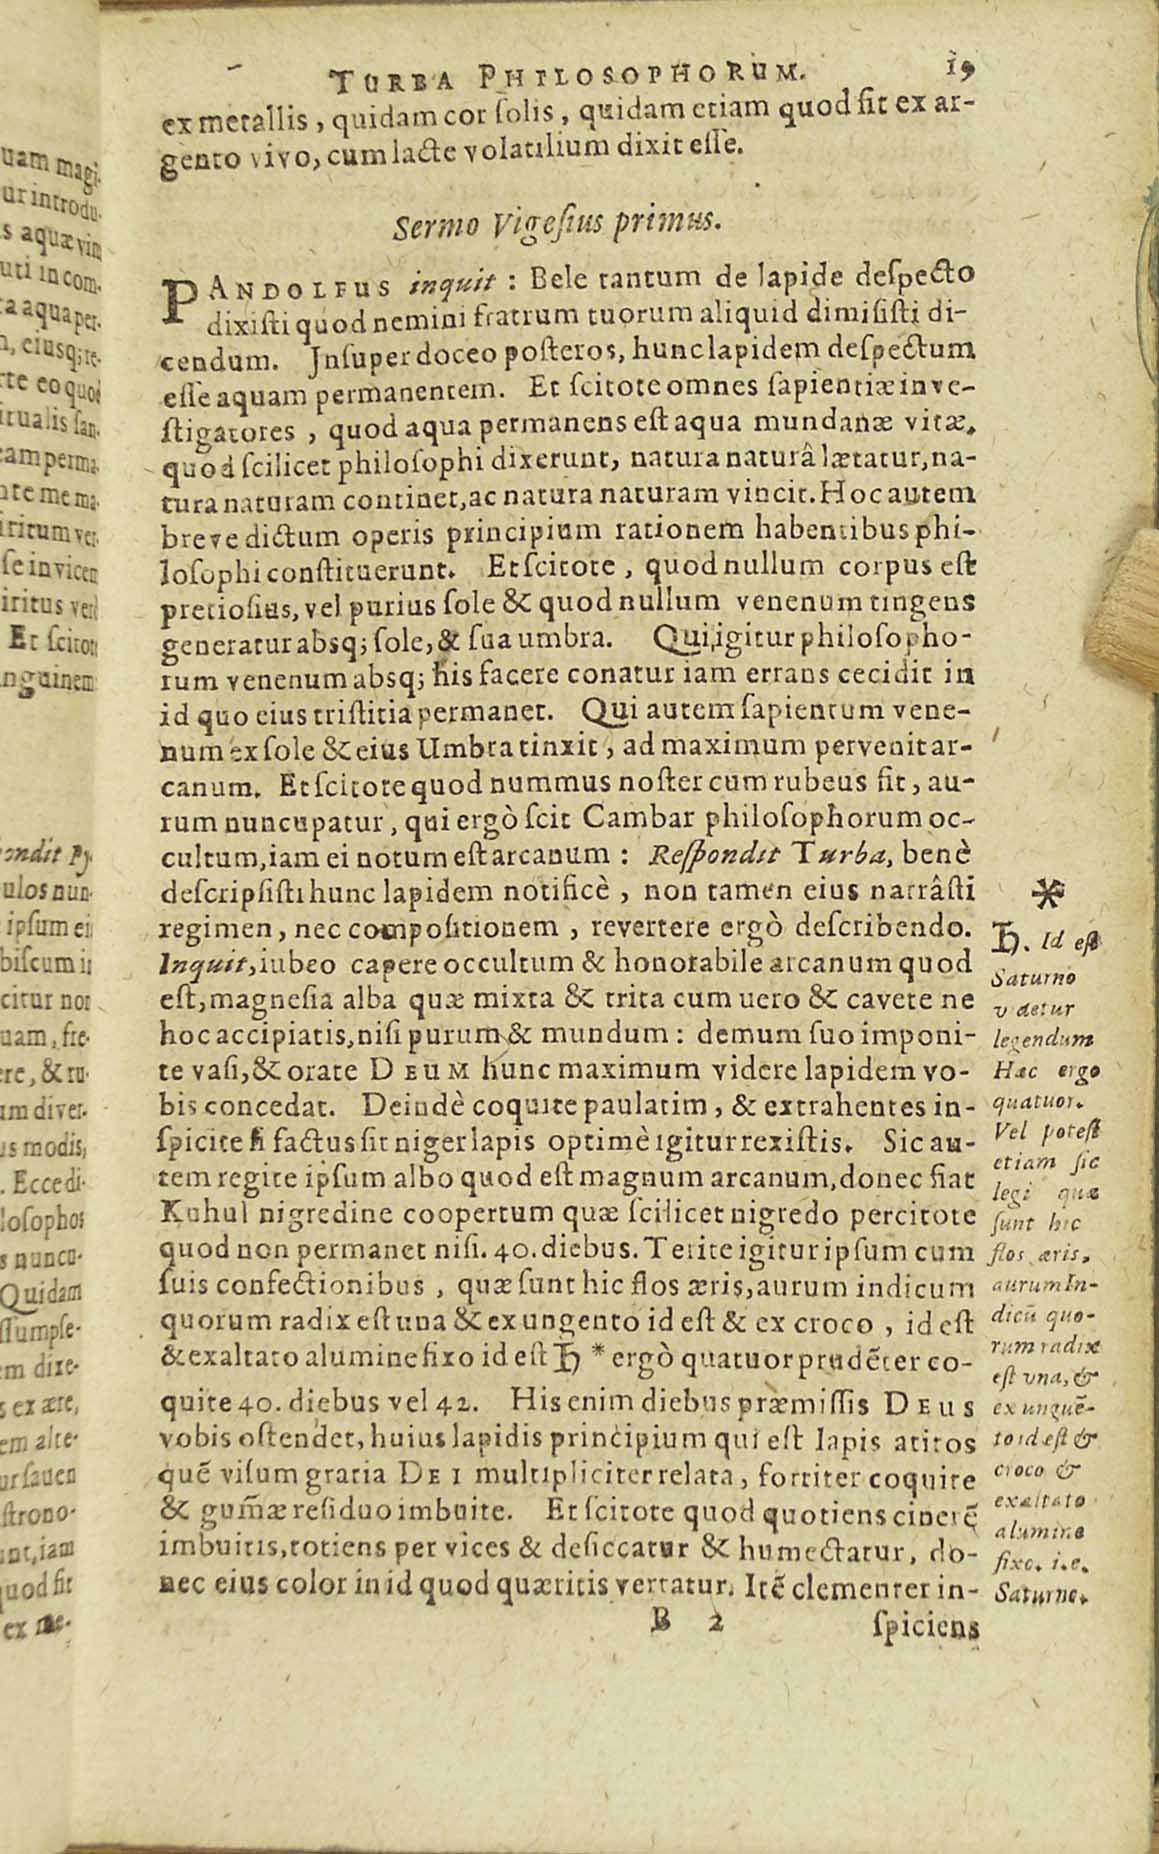 TURBA PHILOSOPHORUM. 19
ex metallis, quidam cor ſolis, quidam etiam quod ſit ex ar-
gento vivo, cum lacte volatilium dixit eſſe.
Sermo Vigeſius primus.
PANDOLFUS inquit: Bele tantum de lapide deſpecto
dixiſti quod nemini fratrum tuorum aliquid dimiſiſti di-
cendum. Jnſuper doceo poſteros, hunc lapidem deſpectum
eſſe aquam permanentem. Et ſcitote omnes ſapientiæ inve-
ſtigatores, quod aqua permanens eſt aqua mundanæ vitæ,
quod ſcilicet philoſophi dixerunt, natura naturâ lætatur, na-
tura naturam continet, ac natura naturam vincit. Hoc autem
breve dictum operis principium rationem habentibus phi-
loſophi conſtituerunt. Et ſcitote, quod nullum corpus eſt
pretioſius, vel purius ſole & quod nullum venenum tingens
generatur absq; ſole, & ſua umbra. Qui igitur philoſopho-
rum venenum absq; his facere conatur iam errans cecidit in
id quo eius triſtitia permanet. Qui autem ſapientum vene-
num ex ſole & eius Umbra tinxit, ad maximum pervenit ar-
canum. Et ſcitote quod nummus noſter cum rubeus ſit, au-
rum nuncupatur, qui ergò ſcit Cambar philoſophorum oc-
cultum, iam ei notum eſt arcanum: Reſpondit Turba, benè
deſcripſiſti hunc lapidem notificè, non tamen eius narrâſti
regimen, nec compoſitionem, revertere ergò deſcribendo.
Inquit, iubeo capere occultum & honorabile arcanum quod
eſt, magneſia alba quæ mixta & trita cum uero & cavete ne
hoc accipiatis, niſi purum & mundum: demum ſuo imponi-
te vaſi, & orate DEUM hunc maximum videre lapidem vo-
bis concedat. Deindè coquite paulatim, & extrahentes in-
ſpicite ſi factus ſit niger lapis optimè igitur rexiſtis. Sic au-
tem regite ipſum albo quod eſt magnum arcanum, donec fiat
Kuhul nigredine coopertum quæ ſcilicet nigredo percitote
quod non permanet niſi. 40. diebus. Terite igitur ipſum cum
ſuis confectionibus, quæ ſunt hic flos æris, aurum indicum
quorum radix eſt una & ex ungento id eſt & ex croco, id eſt
& exaltato alumine fixo id eſt ♄ * ergò quatuor prudẽter co-
quite 40. diebus vel 42. His enim diebus præmiſſis DEUS
vobis oſtendet, huius lapidis principium qui eſt lapis atitos
quẽ viſum gratia DEI multipliciter relata, fortiter coquite
& gum̃æ reſiduo imbuite. Et ſcitote quod quotiens cinerẽ
imbuitis, totiens per vices & deſiccatur & humectatur, do-
nec eius color in id quod quæritis vertatur. Itẽ clementer in-
B 2 ſpiciens
*
♄. Id eſt
Saturno
videtur
legendum
Hæc ergo
quatuor.
Vel poteſt
etiam ſic
legi quæ
ſunt hic
flos æris,
aurum In-
dicũ quo-
rum radix
eſt vna, &
ex unguẽ-
to id eſt &
croco &
exaltato
alumine
fixo. i.e.
Saturno.
uam magi-
ur introdu-
s aquæ vim
uti in com-
ta aqua per-
n, eiusq; te-
rte eo quod